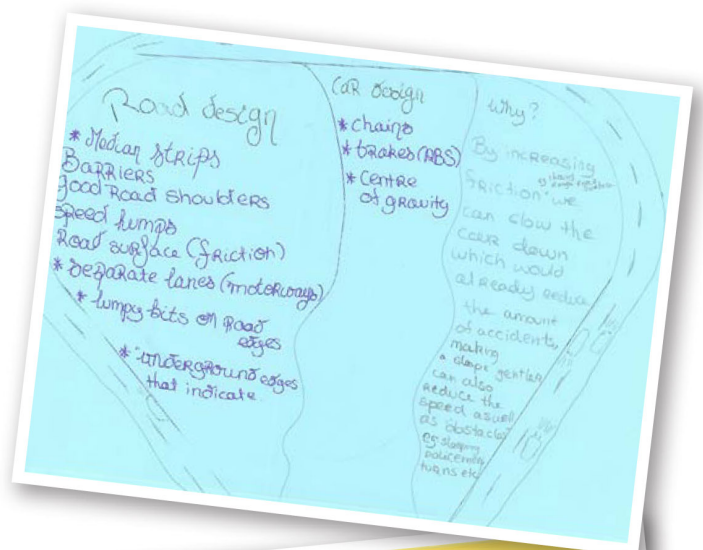 Road design
* Median strips
Barriers
Good Road shoulders
Speed humps
Road surface (friction)
* separate lanes (motorways)
* lumpy bits on Road
edges
* underground edges
that indicate
Car design
* chains
* brakes (ABS)
* Centre
of gravity
Why?
By increasing
friction we
can slow the
car down
which would
already reduce
the amount
of accidents,
making
a slope gentler
can also
reduce the
speed aswell
as obstacles
eg sleeping
policemen,
turns etc